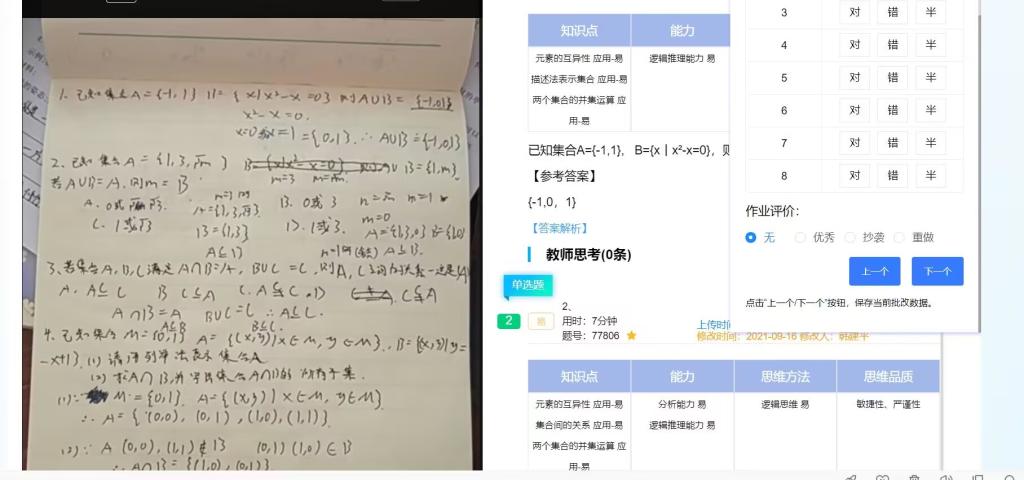 1. 已知集合A={-1,1} B={x|x²-x=0} 则A∪B={-1,0,1}
x²-x=0.
x=0或x=1={0,1}. ∴A∪B={-1,0,1}
2. 已知集合A={1,3,√m} B={1,m}
若A∪B=A.则m= B
A. 0或√3. B. 0或3
C. 1或√3 D. 1或3.
m=0
A={1,3,0}
B={1,3}
A⊆B.
3. 若集合A,B,C满足A∩B=A, B∪C=C,则A,C之间的关系一定是(A)
A. A⊆C B C⊆A C. A⊊C D C⊊A
A∩B=A B∪C=C ∴A⊆C.
A⊆B B⊆C.
4. 已知集合M={0,1} A={(x,y)|x∈M, y∈M}. B={(x,y)|y=
-x+1}. (1) 请用列举法表示集合A
(2) 求A∩B,并写出集合A∩B的所有子集.
(1)∵ M={0,1}. A={(x,y)|x∈M, y∈M}
∴A={(0,0),(0,1),(1,0),(1,1)}.
(2)∵ A (0,0),(1,1)∉B (0,1)(1,0)∈B
∴A∩B={(1,0),(0,1)}
知识点 能力
元素的互异性 应用-易 逻辑推理能力 易
描述法表示集合 应用-易
两个集合的并集运算 应
用-易
已知集合A={-1,1}，B={x｜x²-x=0}，则
【参考答案】
{-1,0，1}
【答案解析】
教师思考(0条)
单选题
2 易
2、
用时：7分钟
题号：77806
上传时间
修改时间：2021-09-16 修改人：韩建平
知识点 能力 思维方法 思维品质
元素的互异性 应用-易 分析能力 易 逻辑思维 易 敏捷性、严谨性
集合间的关系 应用-易 逻辑推理能力 易
两个集合的并集运算 应
用-易
3 对 错 半
4 对 错 半
5 对 错 半
6 对 错 半
7 对 错 半
8 对 错 半
作业评价：
无 优秀 抄袭 重做
上一个 下一个
点击“上一个/下一个”按钮，保存当前批改数据。